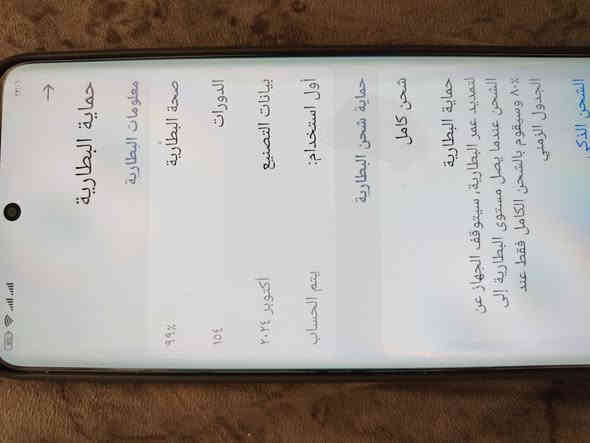 حماية البطارية
معلومات البطارية
صحة البطارية ٩٩٪
الدورات ١٥٤
بيانات التصنيع اكتوبر ٢٠٢٤
أول استخدام: يتم الحساب
حماية شحن البطارية
شحن كامل
حماية البطارية
لتمديد عمر البطارية، سيتوقف الجهاز عن
الشحن عندما يصل مستوى البطارية إلى
٨٠٪ وسيقوم بالشحن الكامل فقط عند
الجدول الزمني
الشحن الذكي